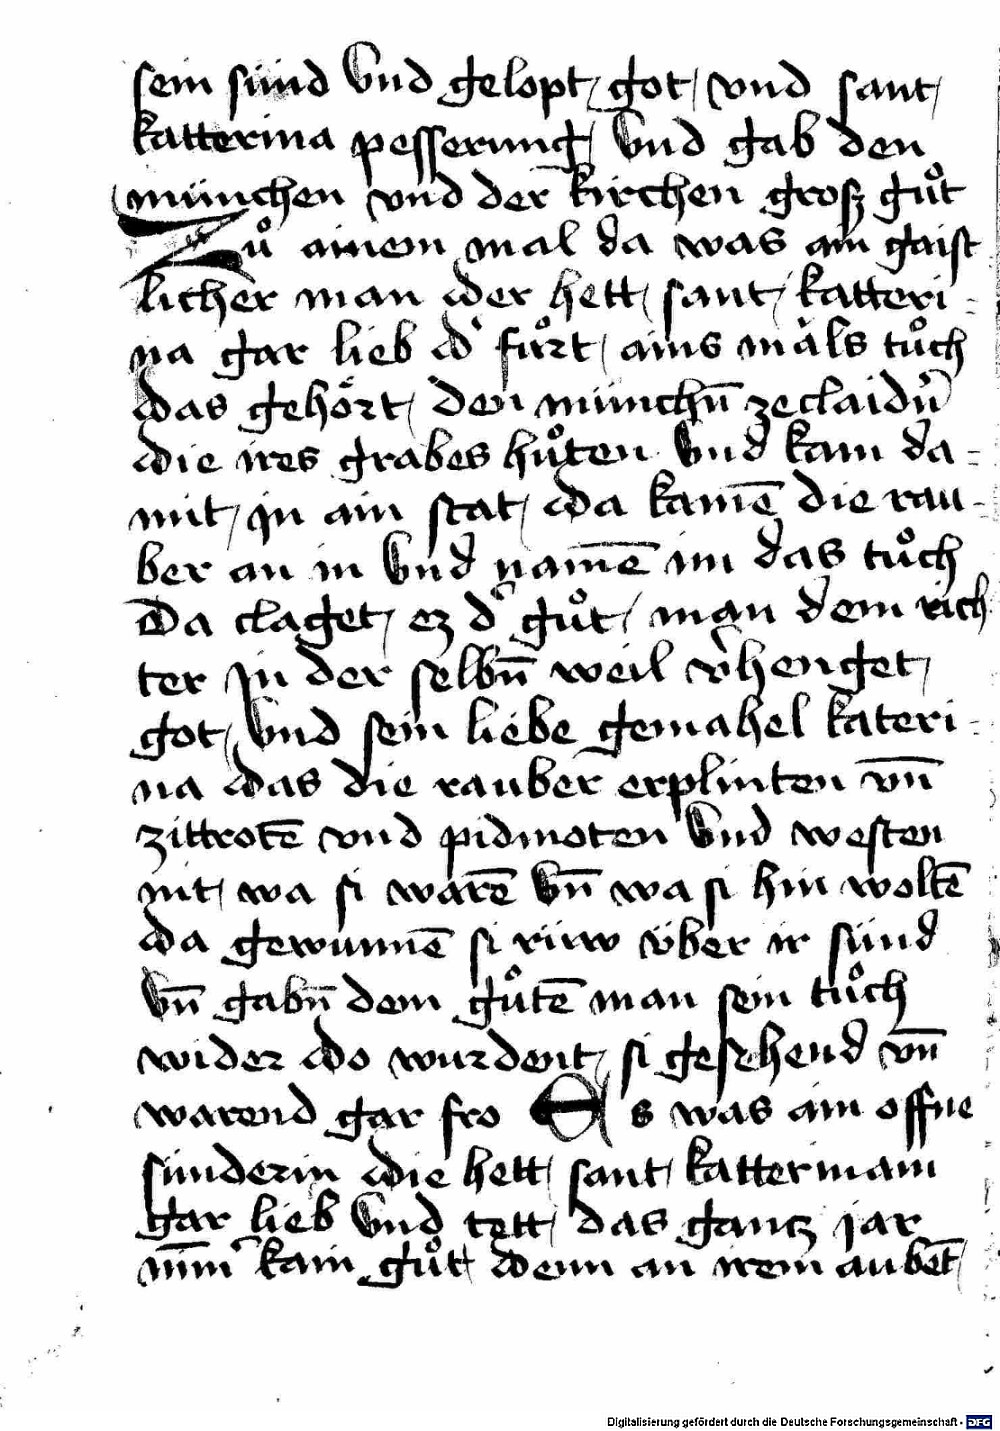 sein sünd vnd gelopt got vnd sant
katterina pesserung vnd gab den
münchen vnd der kirchen grosz gůt
Zů ainem mal da was ain gaist
licher man der hett sant katteri-
na gar lieb d' fůrt ains mals tůch
das gehört den münchn̄ zeclaidn̄
die ires grabes hůten vnd kam da-
mit in ain stat da kamē die rau-
ber an in vnd namē im das tůch
Da claget ez d' gůt man dem rich
ter in der selbn̄ weil v'henget
got vnd sein liebe gemahel kateri-
na das die rauber erplinten vn̄
zittrotē vnd pidmoten vnd westen
nit wa si warē vn̄ wa si hin woltē
da gewunnē si rüw über ir sünd
vn̄ gabn̄ dem gůtē man sein tůch
wider do wurdent si gesehend vn̄
warend gar fro Es was ain offne
sünderin die hett sant katterinam
gar lieb vnd tett das gantz jar
kain gůt denn an irem aubēt